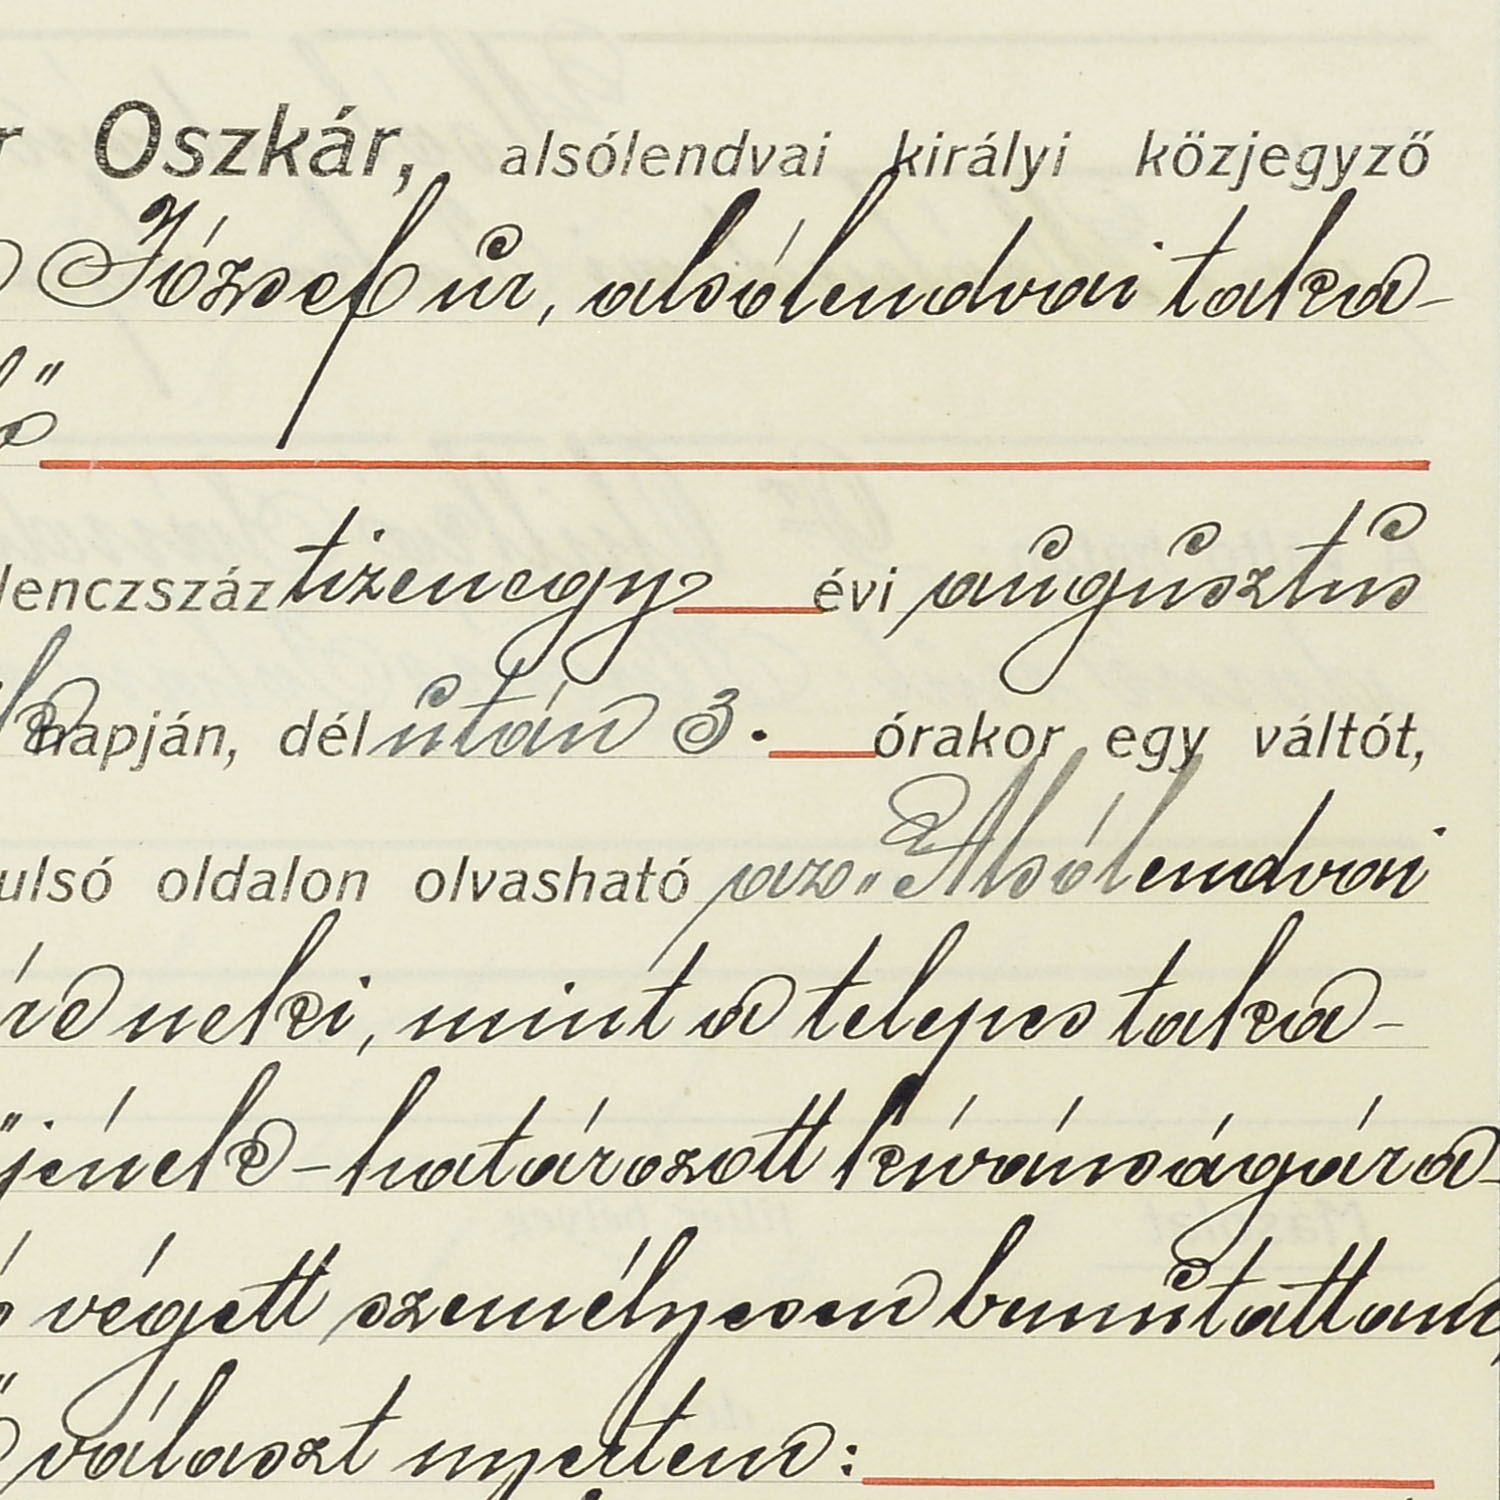 r Oszkár, alsólendvai királyi közjegyző
József úr, alsólendvai taka-
lenczszáz tizenegy évi augusztus
napján, délután 3. órakor egy váltót,
ulsó oldalon olvasható az „Alsólendvai
neki, mint a telepes taka-
jének - határozott kívánságára -
végett személyesen bemutattam,
választ nyertem: